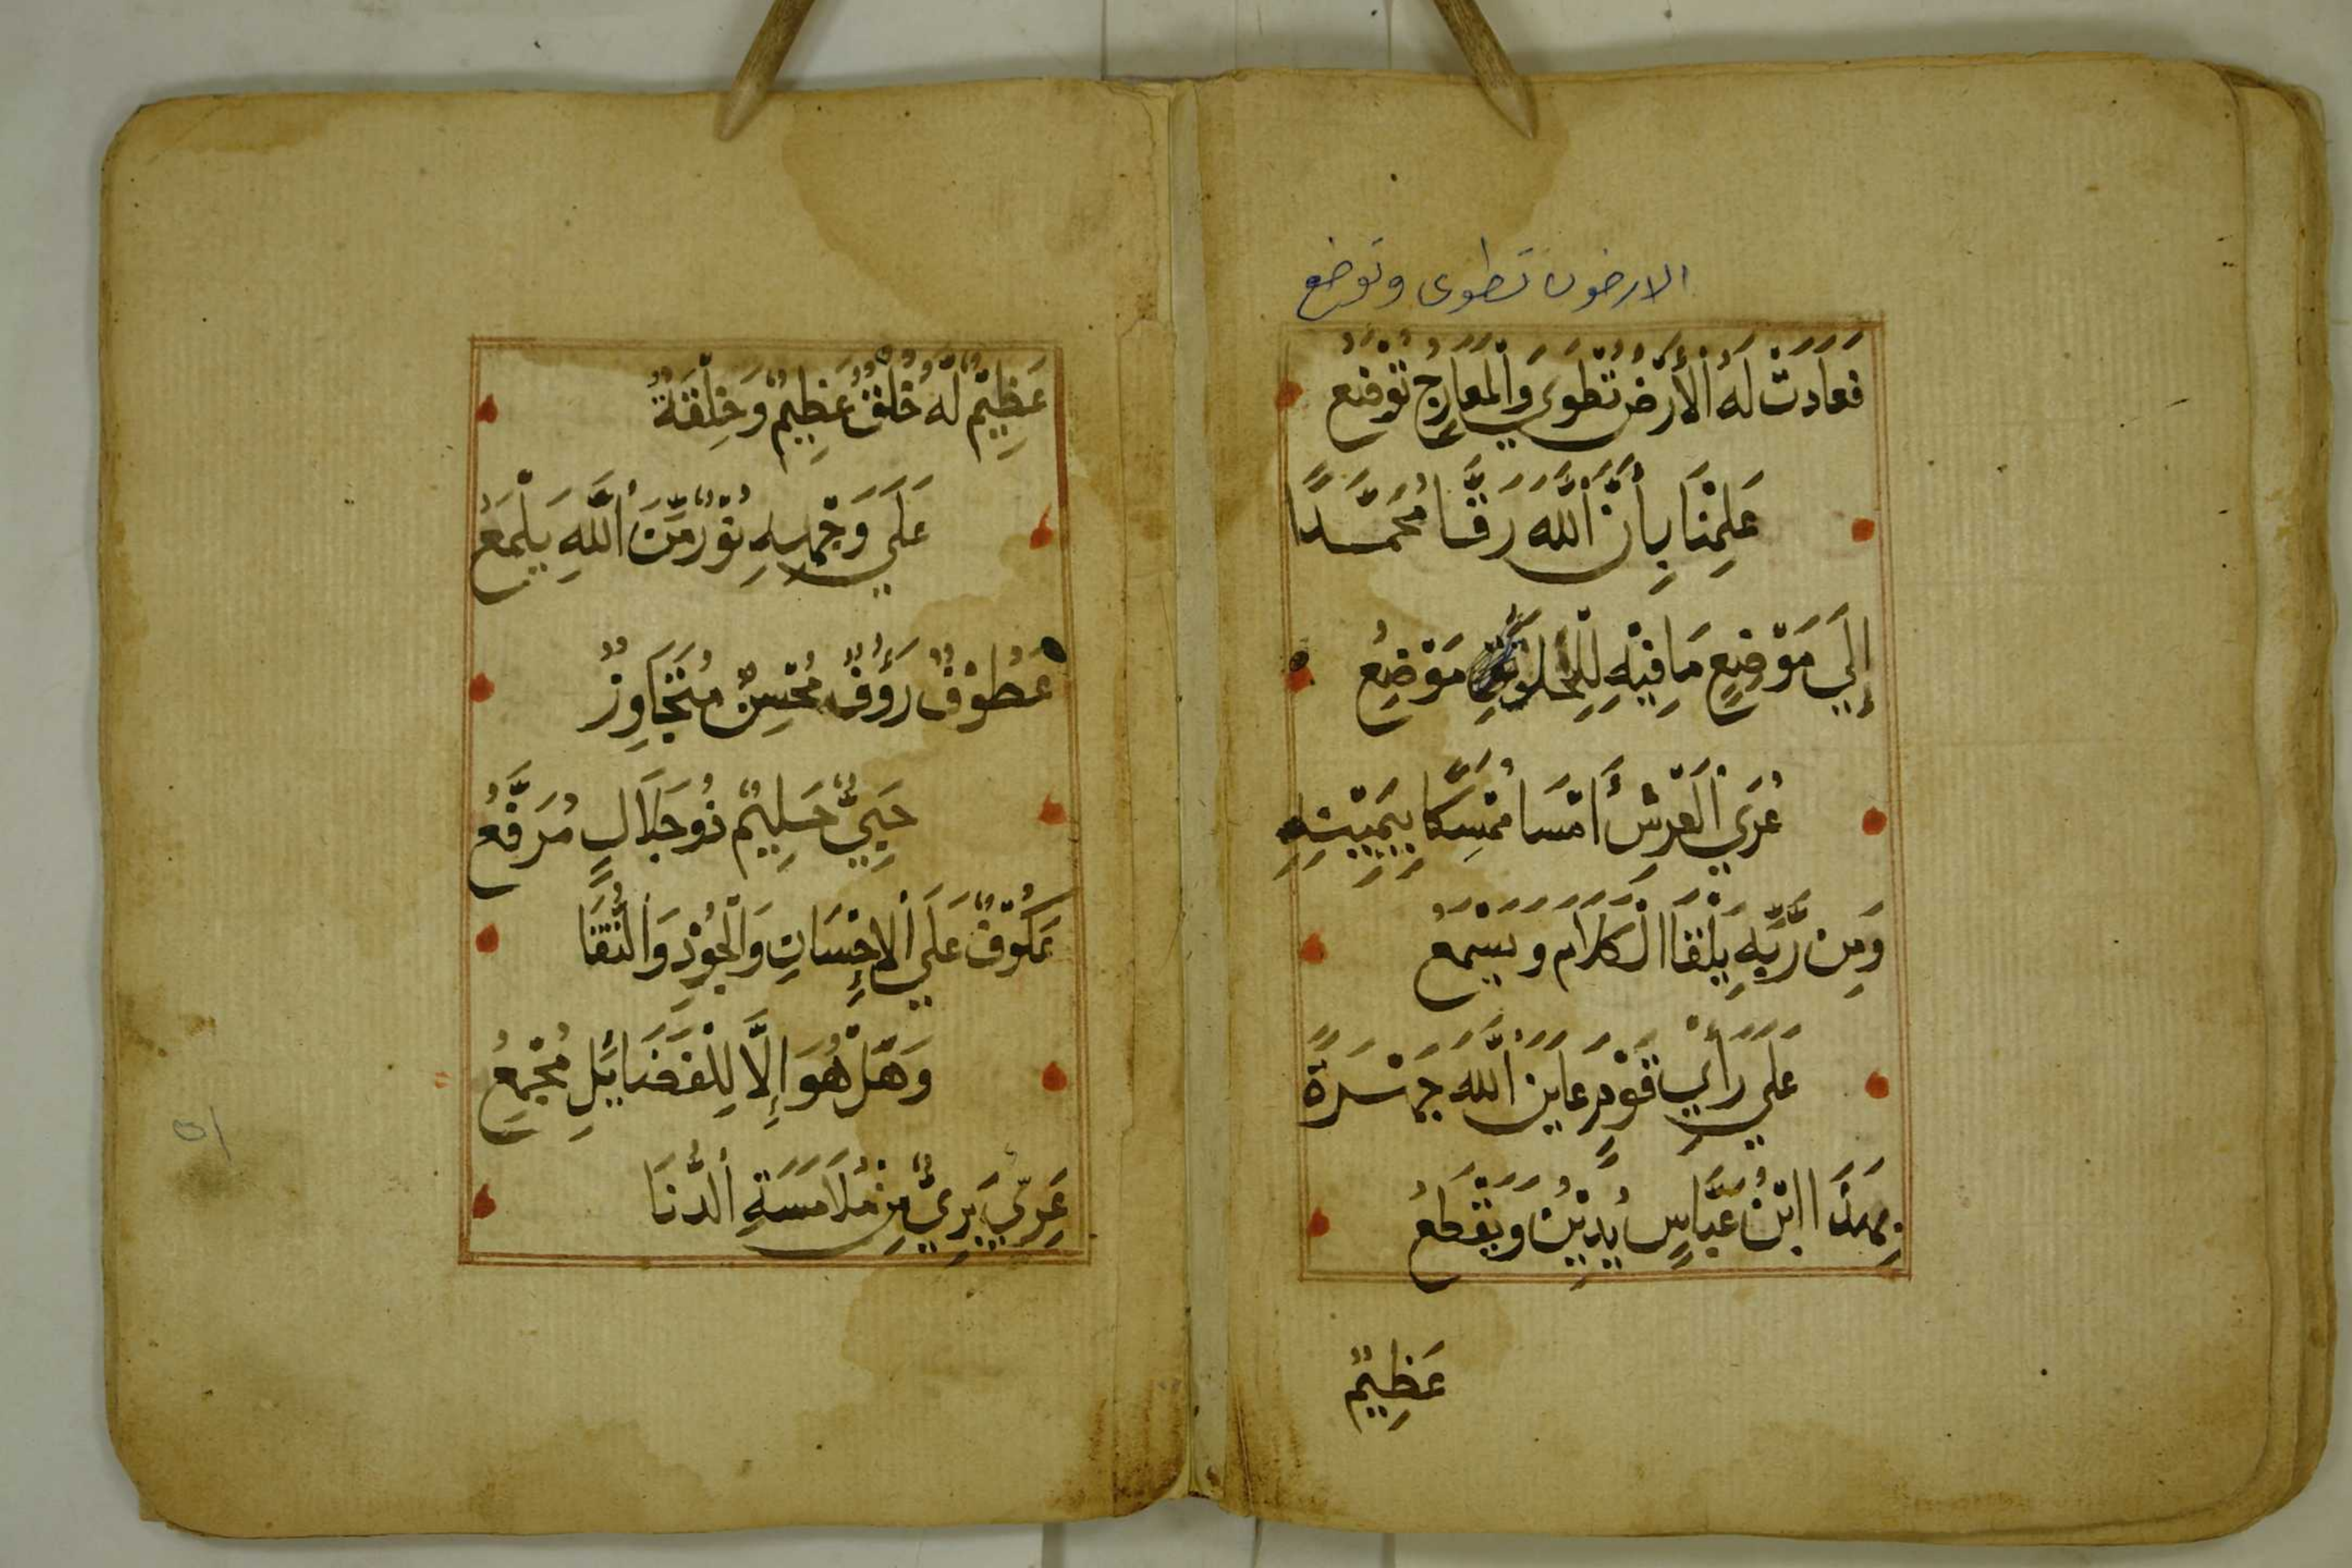 الارضون تطوى وتوضع
فَعَادَتْ لَهُ الْأَرْضُ تُطْوَى وَالْمَعَارِجُ تُوْضَعُ
عَلِمْنَا بِأَنَّ اللَّهَ رَقَّا مُحَمَّدًا
إِلَي مَوْضِعٍ مَا فِيْهِ لِلْخَلْقِ مَوْضِعُ
عُرَي الْعَرْشِ أَمْسَا مُمْسِكًا بِيَمِيْنِهِ
وَمِن رَّبِّهِ يَلْقَا الْكَلَامَ وَيَسْمَعُ
عَلَي رَأْيِ قَوْمٍ عَايَنَ اللَّهَ جَهْرَةً
بِهَذَا ابْنُ عَبَّاسٍ يُدِيْنُ وَيَقْطَعُ
عَظِيْمٌ
عَظِيْمٌ لَهُ خُلُقٌ عَظِيْمٌ وَخِلْقَةٌ
عَلَي وَجْهِهِ نُوْرٌ مِّنَ اللَّهِ يَلْمَعُ
عَطُوْفٌ رَؤُفٌ مُحْسِنٌ مُتَجَاوِزٌ
حَيِيٌّ حَلِيْمٌ ذُو جَلَالٍ مُرَفَّعُ
عَكُوْفٌ عَلَي الْإِحْسَانِ وَالْجُوْدِ وَالتُّقَا
وَهَلْ هُوَ إِلَّا لِلْفَضَائِلِ مَجْمَعُ
عَرِيٌّ بَرِيٌّ مِنْ مُلَامَسَةِ الدُّنَا